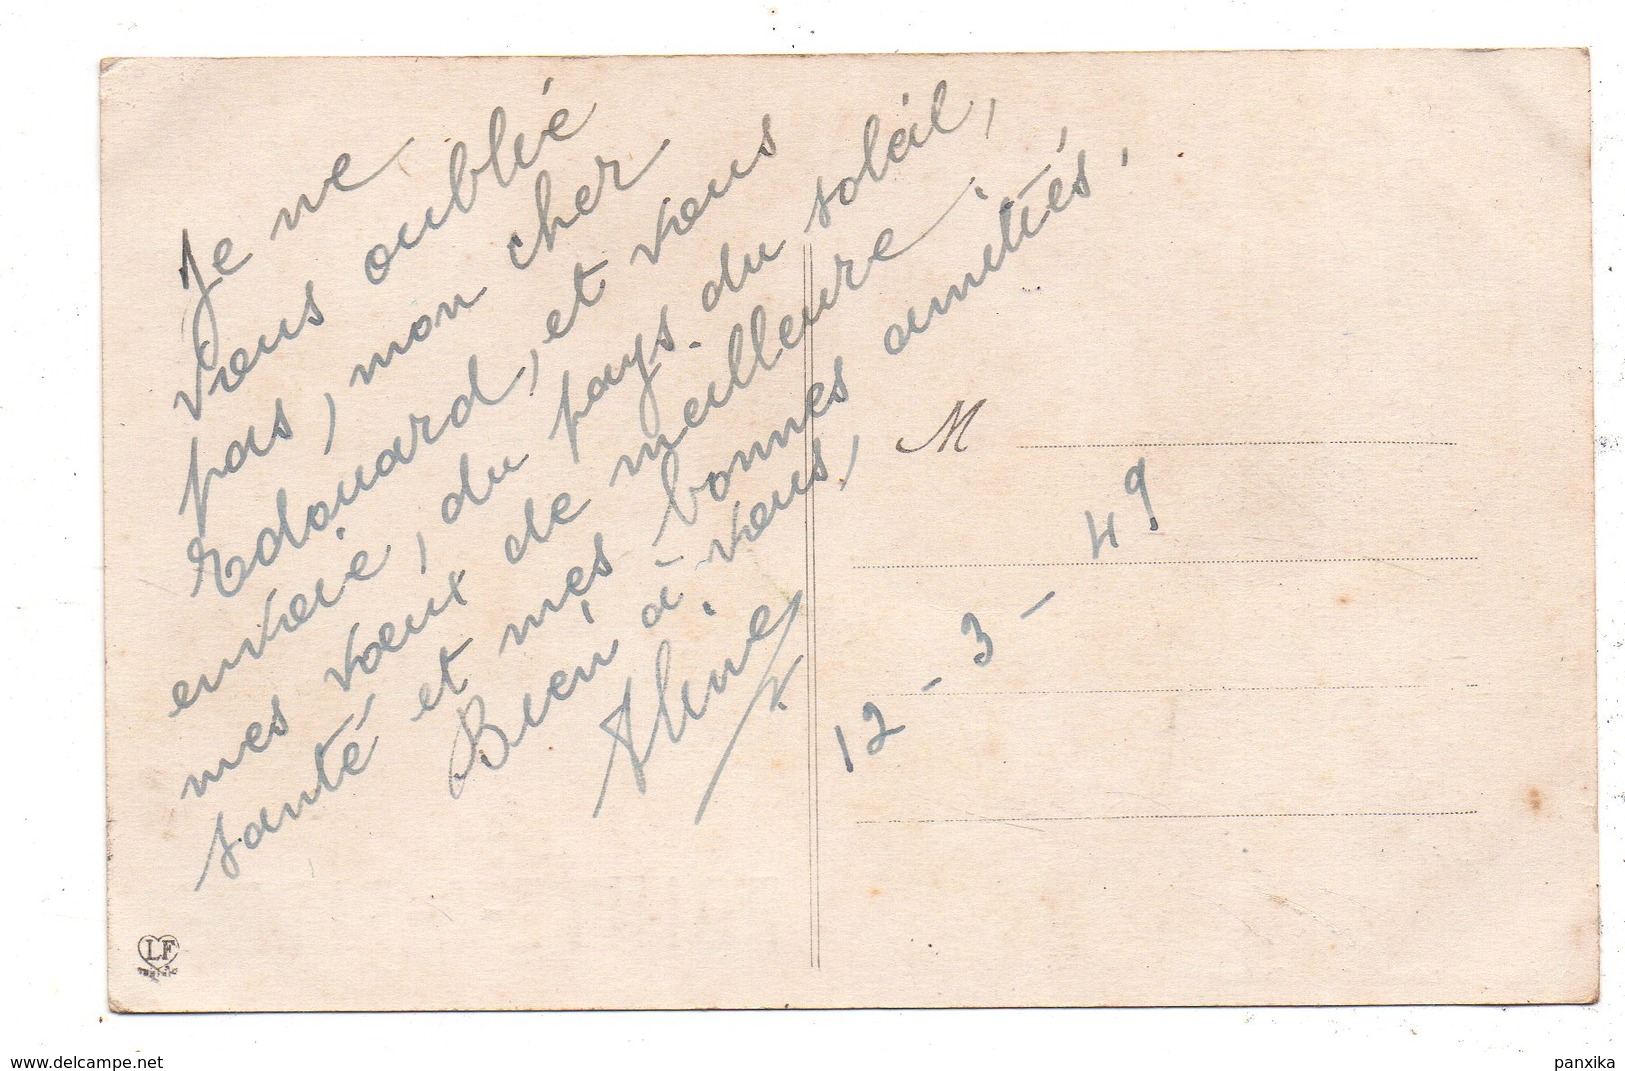 Je ne
vous oublié
pas, mon cher
Edouard, et vous
envoie, du pays du soleil,
mes vœux de meilleure
santé et mes bonnes amitiés.
Bien à vous,
Aline
M
12 - 3 - 49
LF
www.delcampe.net
panxika